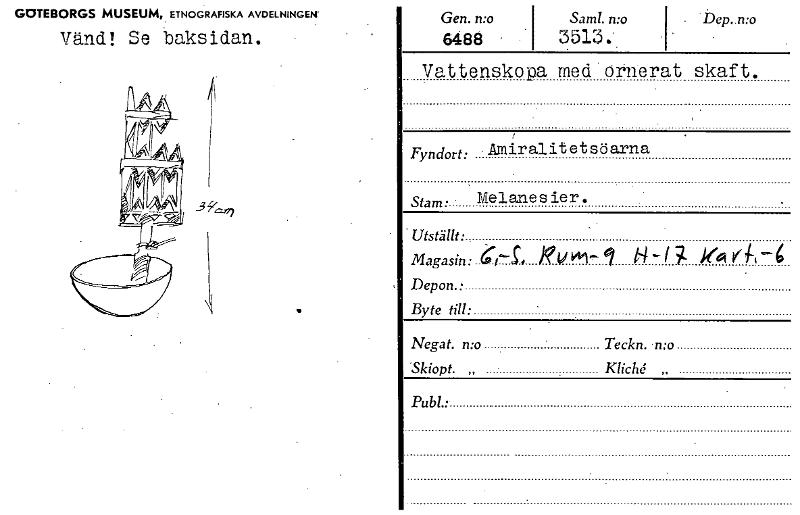 GÖTEBORGS MUSEUM, ETNOGRAFISKA AVDELNINGEN
Vänd! Se baksidan.
34 cm
Gen. n:o
6488
Saml. n:o
3513.
Dep. n:o
Vattenskopa med ornerat skaft.
Fyndort: Amiralitetsöarna
Stam: Melanesier.
Utställt:
Magasin: G,-S. Rum-9 H-17 Kart.-6
Depon.:
Byte till:
Negat. n:o Teckn. n:o
Skiopt. „ Kliché „
Publ.: